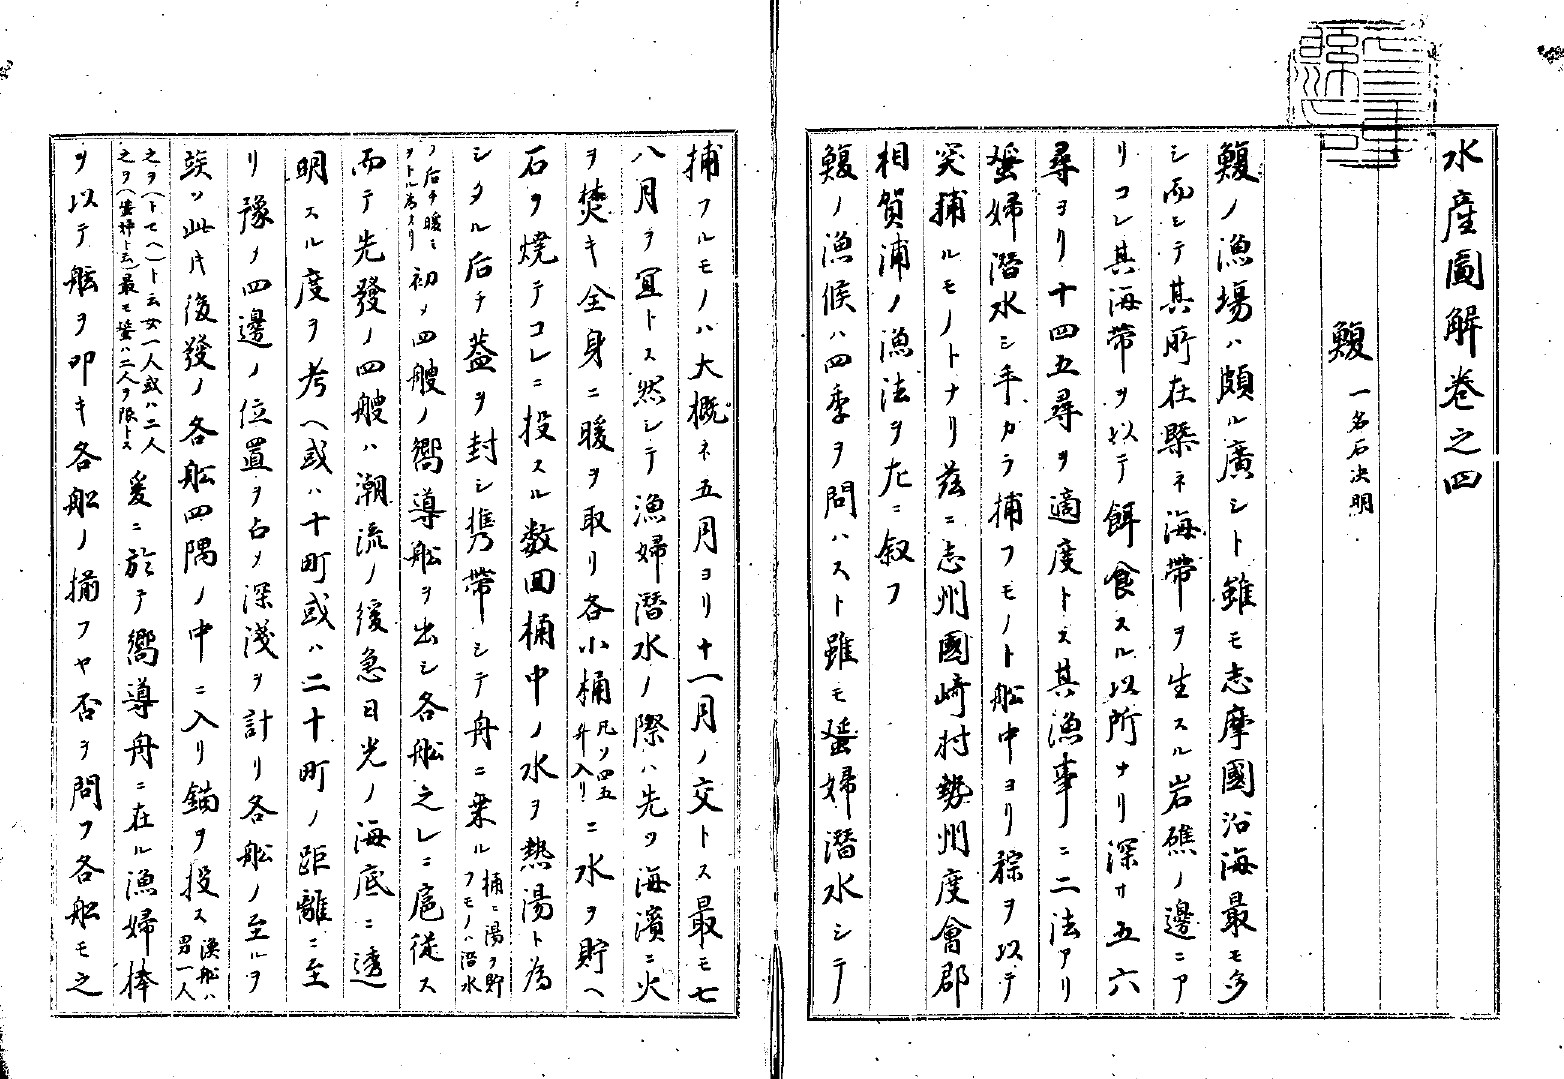 水産圖解巻之四
鰒 一名石决明
鰒ノ漁塲ハ頗ル廣シト雖モ志摩國沿海最モ多
シ而シテ其所在槩ネ海帶ヲ生スル岩礁ノ邊ニア
リコレ其海帶ヲ以テ餌食スル以所ナリ深サ五六
尋ヨリ十四五尋ヲ適度トス其漁事ニ二法アリ
蜑婦潛水シ手カラ捕フモノト舩中ヨリ稼ヲ以テ
突捕ルモノトナリ茲ニ志州國崎村勢州度會郡
相賀浦ノ漁法ヲ左ニ叙フ
鰒ノ漁候ハ四季ヲ問ハスト雖モ蜑婦潛水シテ
捕フルモノハ大概ネ五月ヨリ十一月ノ交トス最モ七
八月ヲ宜トス然シテ漁婦潛水ノ際ハ先ツ海濱ニ火
ヲ焚キ全身ニ暖ヲ取リ各小桶 凡ソ四五升入リ ニ水ヲ貯ヘ
石ヲ燒テコレニ投スル数回桶中ノ水ヲ熱湯ト為
シタル后チ葢ヲ封シ携帶シテ舟ニ乗ル 桶ニ湯ヲ貯フモノハ潛水
ノ后チ暖ミヲトル為スリ 初メ四艘ノ嚮導舩ヲ出シ各舩之レニ扈従ス
而テ先發ノ四艘ハ潮流ノ緩急日光ノ海底ニ透
明スル度ヲ考ヘ或ハ十町或ハ二十町ノ距離ニ至
リ豫ノ四邊ノ位置ヲ占メ深淺ヲ計リ各舩ノ至ルヲ
竢ツ此時後發ノ各舩四隅ノ中ニ入リ錨ヲ投ス 漁舩ハ男一人
之ヲ（トセヘ）ト云女一人或ハ二人之ヲ（蜑婦ト云）最モ蜑ハ二人ヲ限トス 爰ニ於テ嚮導舟ニ在ル漁婦棒
ヲ以テ舷ヲ叩キ各舩ノ揃フヤ否ヲ問フ各舩モ之